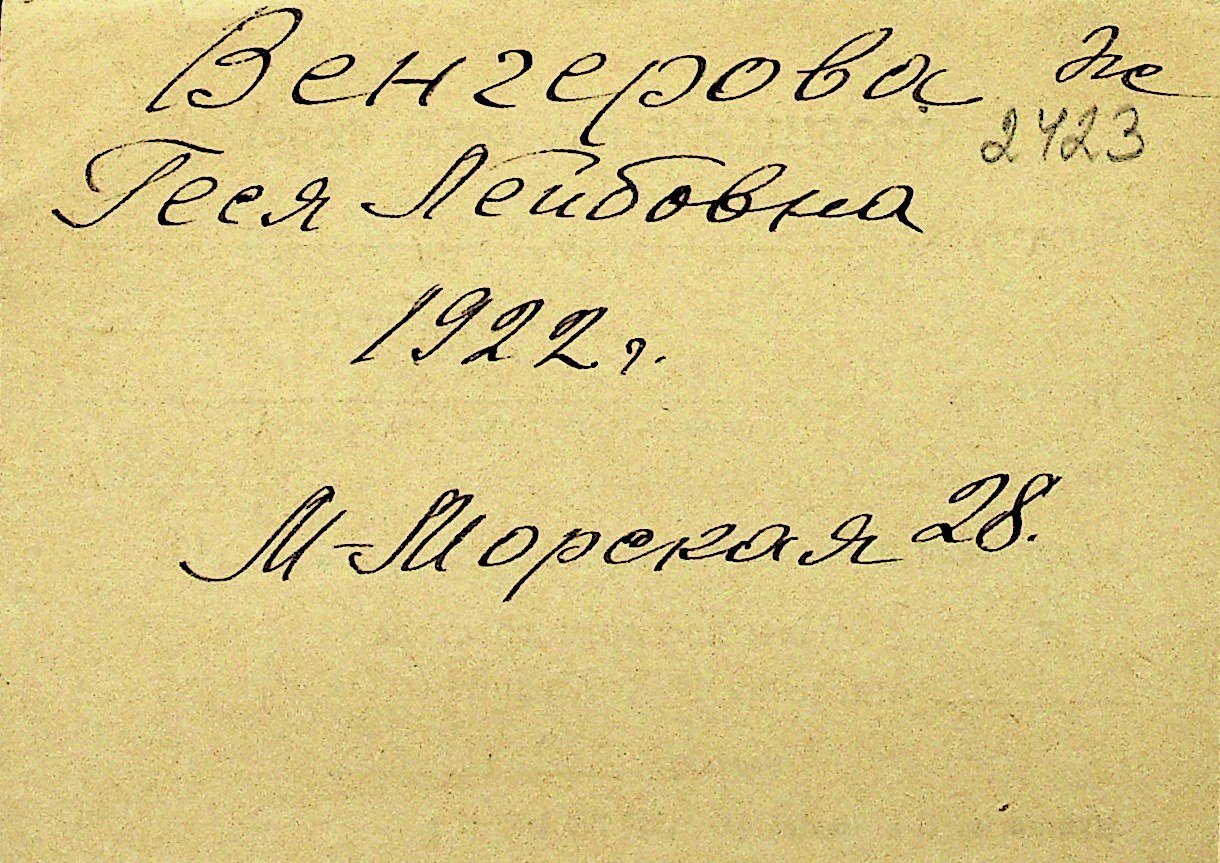 Венгерова
2423
Геся Лейбовна
1922 г.
М-Морская 28.